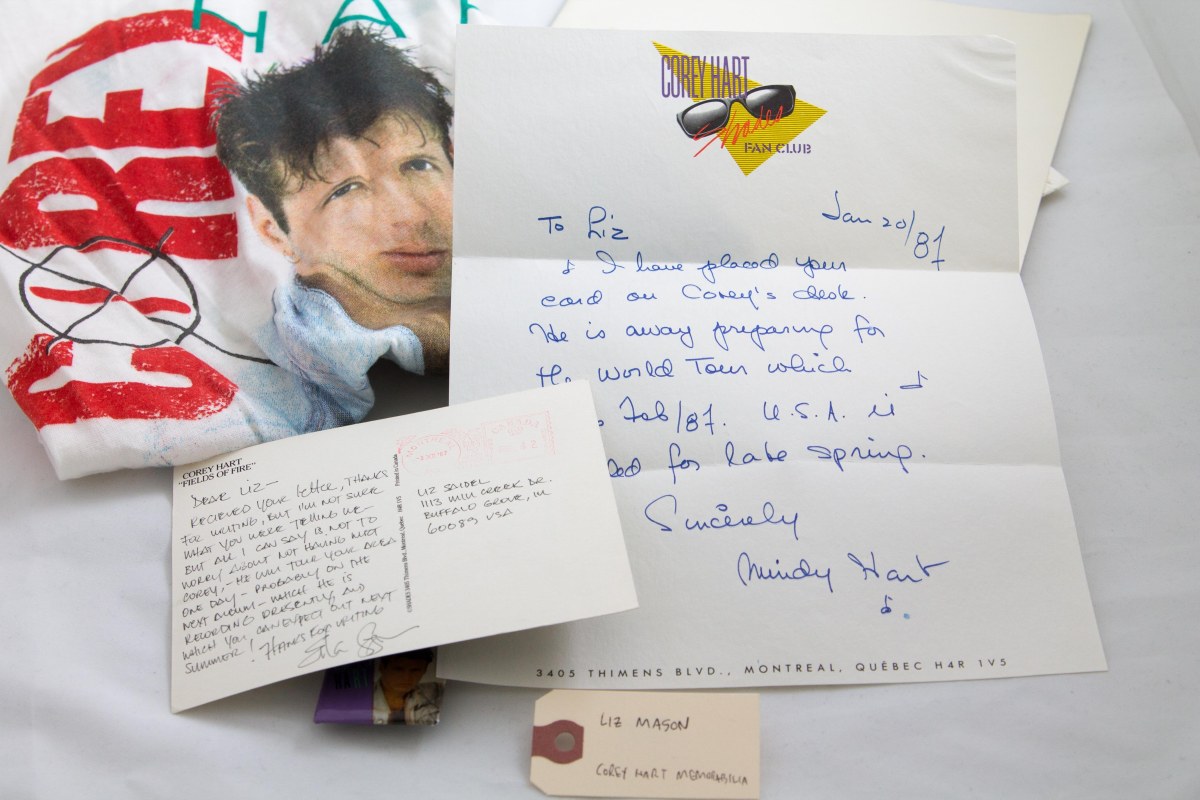 HA
COREY
COREY HART
Shades
FAN CLUB
Jan 20/87
To Liz
I have placed your
card on Corey's desk.
He is away preparing for
the World Tour which
Feb/87. U.S.A. is
for late spring.
Sincerely
Mindy Hart
3405 THIMENS BLVD., MONTREAL, QUÉBEC H4R 1V5
COREY HART
"FIELDS OF FIRE"
DEAR LIZ—
RECIEVED YOUR LETTER, THANKS
FOR WRITING, BUT I'M NOT SURE
WHAT YOU WERE TELLING ME—
BUT ALL I CAN SAY IS NOT TO
WORRY ABOUT NOT HAVING MET
COREY,—HE WILL TOUR YOUR AREA
ONE DAY—PROBABLY ON THE
NEXT ALBUM—WHICH HE IS
RECORDING PRESENTLY, AND
WHICH YOU CAN EXPECT OUT NEXT
SUMMER! THANKS FOR WRITING
Printed in Canada
3405 Thimens Blvd., Montreal, Quebec H4R 1V5
LIZ SAIDEL
1113 MILL CREEK DR.
BUFFALO GROVE, IL
60089 USA
LIZ MASON
COREY HART MEMORABILIA